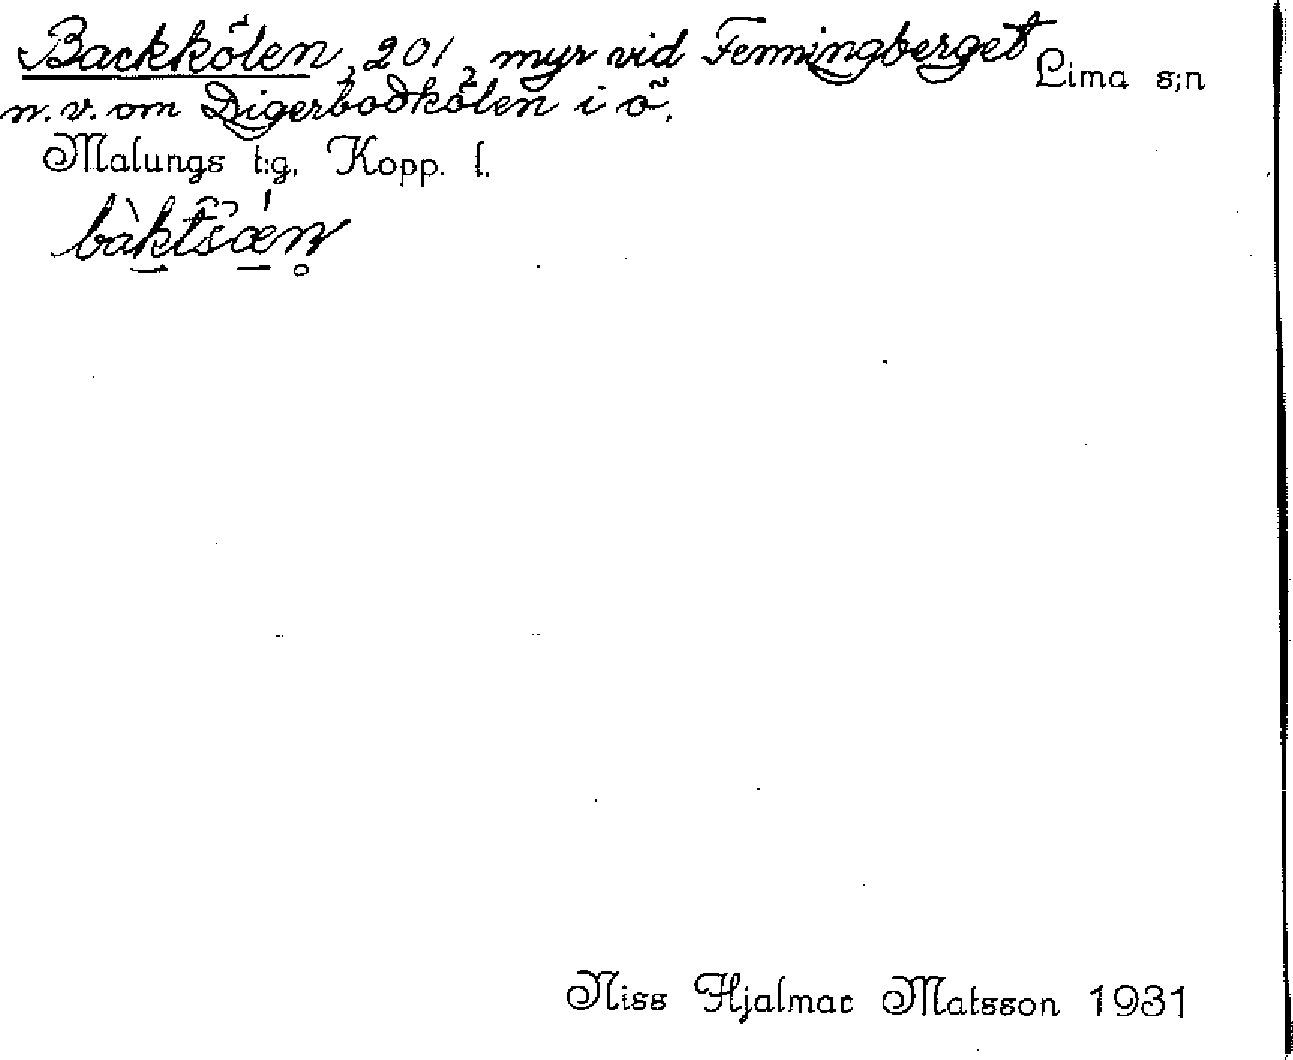 Backkölen, 201, myr vid Fenningberget Lima s;n
n.v. om Digerbodkölen i ö.
Malungs t:g, Kopp. l.
bàktšæn
Niss Hjalmar Matsson 1931